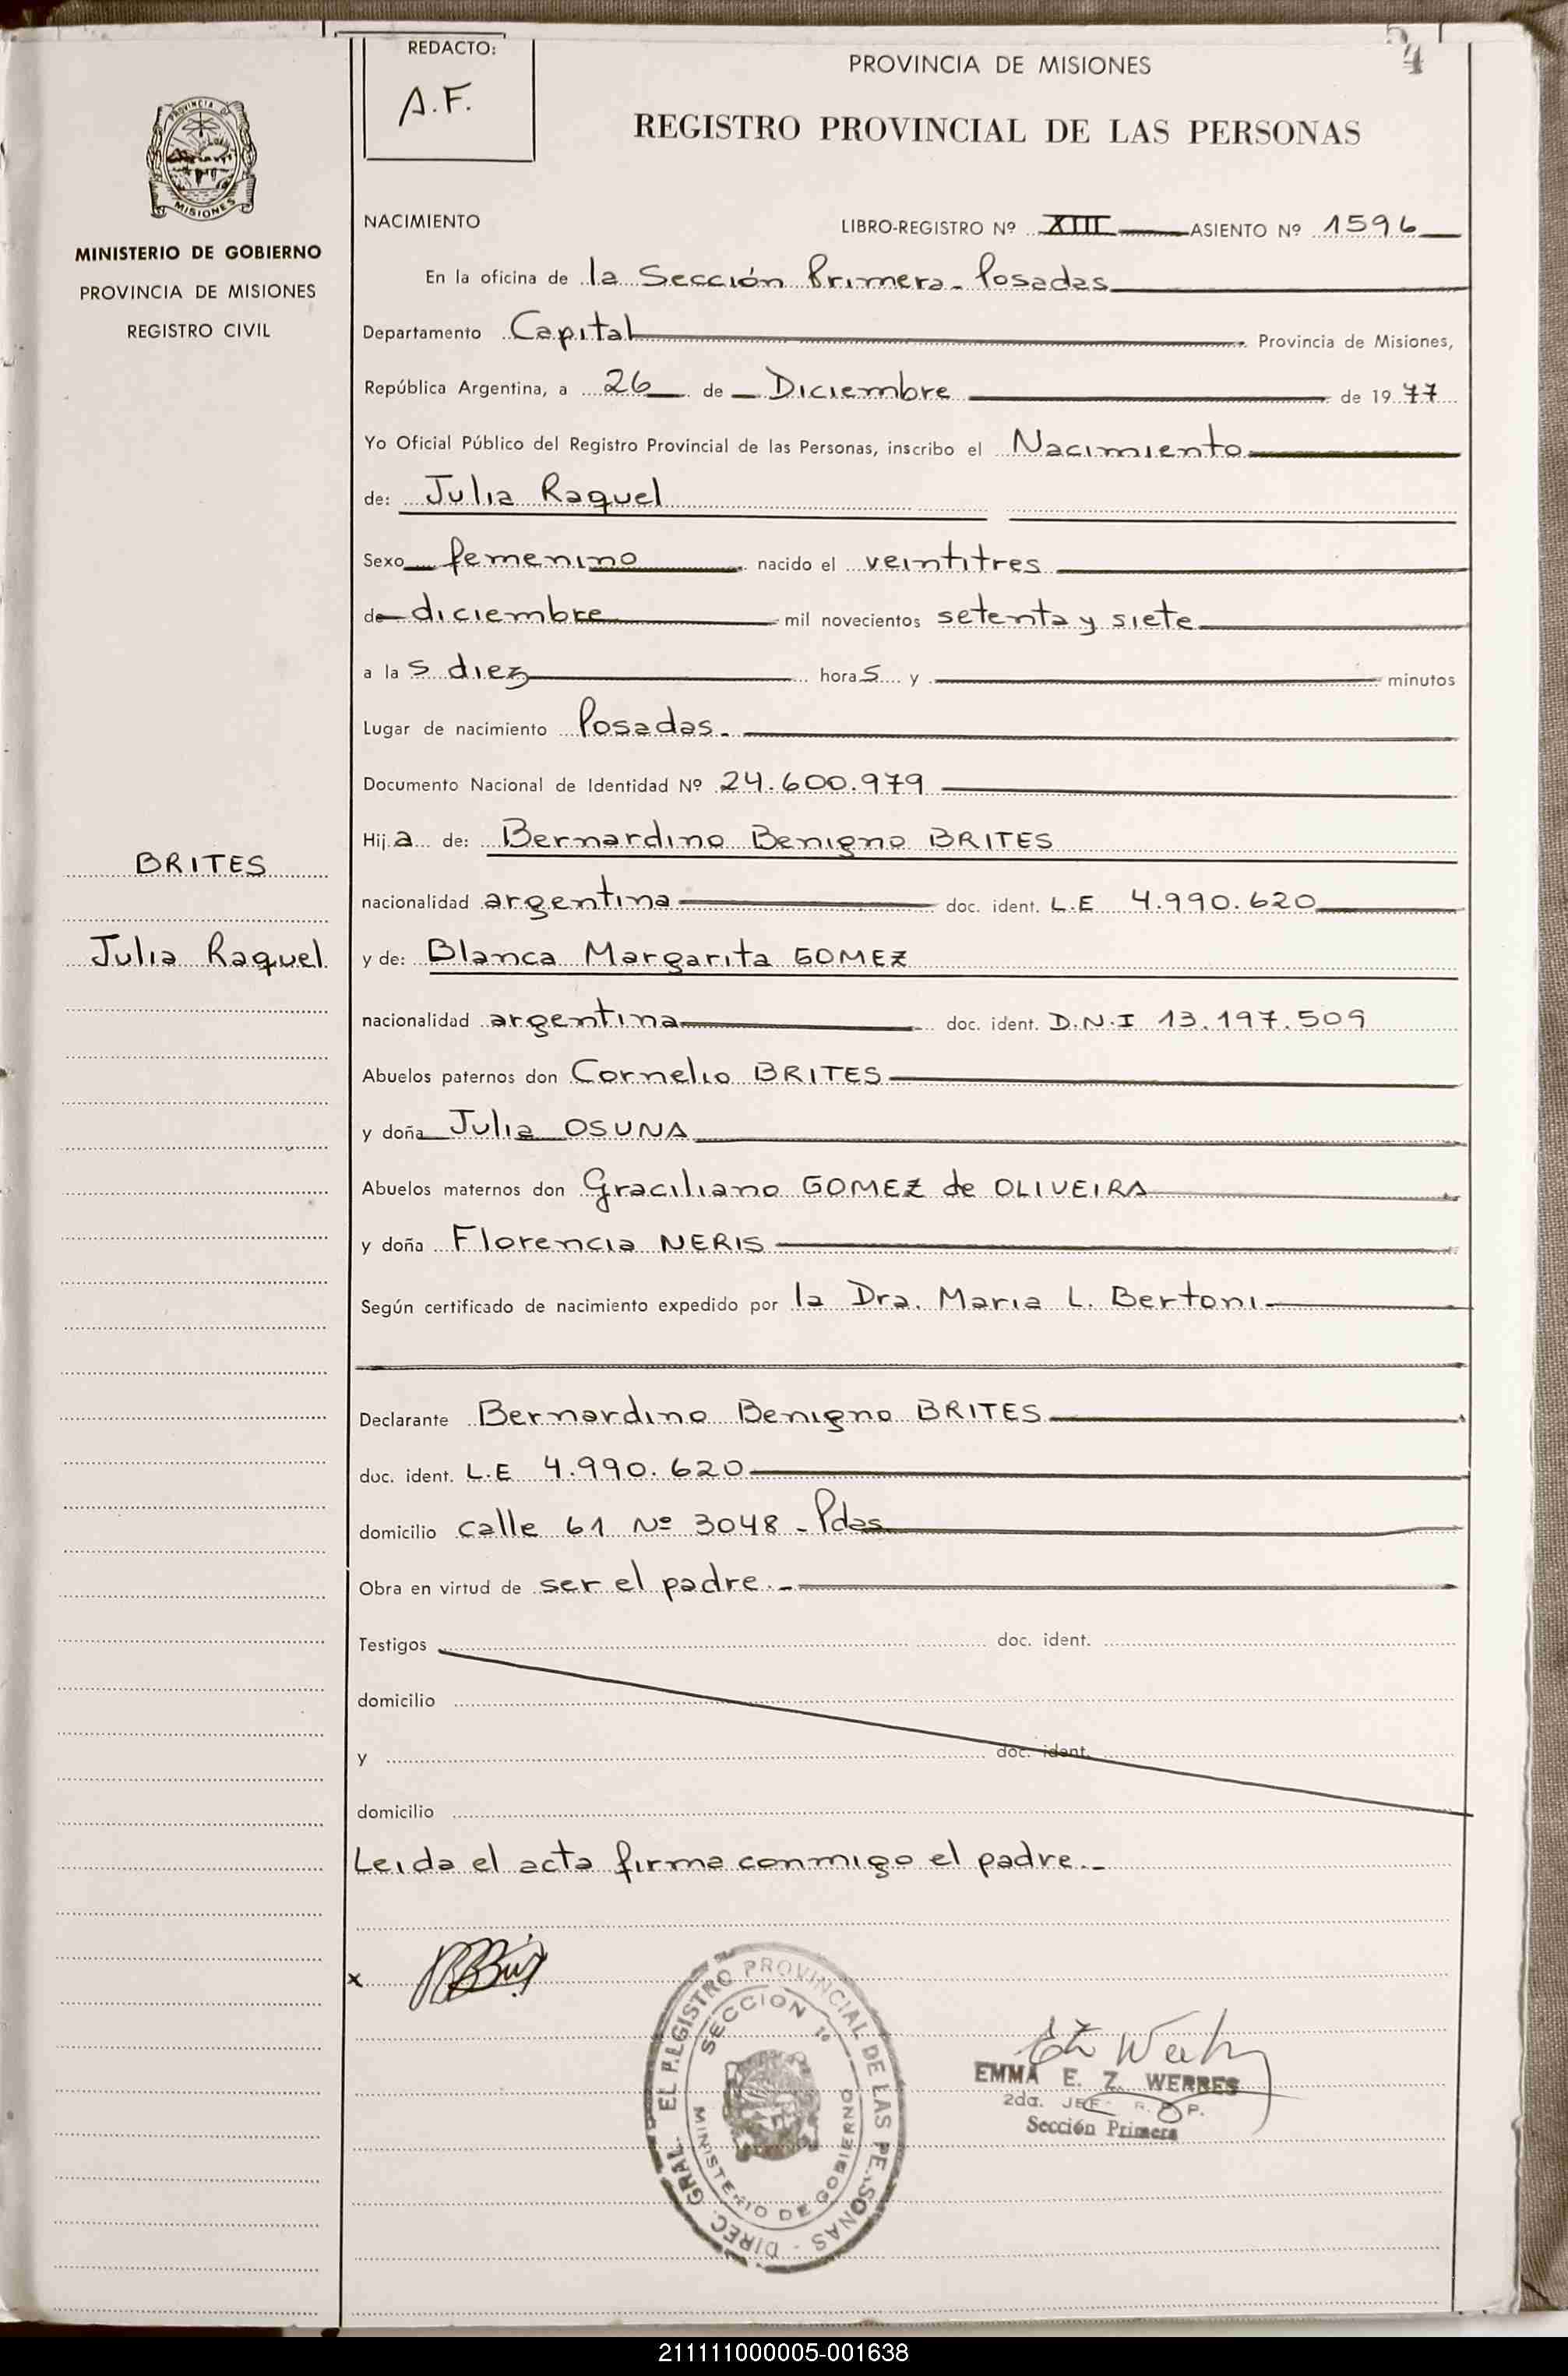 REDACTO:
A.F.
PROVINCIA DE MISIONES
REGISTRO PROVINCIAL DE LAS PERSONAS
PROVINCIA DE
MISIONES
MINISTERIO DE GOBIERNO
PROVINCIA DE MISIONES
REGISTRO CIVIL
NACIMIENTO LIBRO-REGISTRO Nº XIII ASIENTO Nº 1596
En la oficina de la Sección Primera - Posadas
Departamento Capital Provincia de Misiones,
República Argentina, a 26 de Diciembre de 1977
Yo Oficial Público del Registro Provincial de las Personas, inscribo el Nacimiento
de: Julia Raquel
Sexo femenino nacido el veintitres
de diciembre mil novecientos setenta y siete
a la s diez hora s y minutos
Lugar de nacimiento Posadas.
Documento Nacional de Identidad Nº 24.600.979
Hij a de: Bernardino Benigno BRITES
BRITES
nacionalidad argentina doc. ident. L.E 4.990.620
Julia Raquel
y de: Blanca Margarita GOMEZ
nacionalidad argentina doc. ident. D.N.I 13.197.509
Abuelos paternos don Cornelio BRITES
y doña Julia OSUNA
Abuelos maternos don Graciliano GOMEZ de OLIVEIRA
y doña Florencia NERIS
Según certificado de nacimiento expedido por la Dra. Maria L. Bertoni
Declarante Bernardino Benigno BRITES
doc. ident. L.E 4.990.620
domicilio calle 61 Nº 3048 - Pdas
Obra en virtud de ser el padre.-
Testigos doc. ident.
domicilio
y doc. ident.
domicilio
Leida el acta firma conmigo el padre.-
x
DIREC. GRAL. EL REGISTRO PROVINCIAL DE LAS PERSONAS
SECCION 1º
MINISTERIO DE GOBIERNO
EMMA E. Z. WERRES
2da. JEF P.
Sección Primera
211111000005-001638